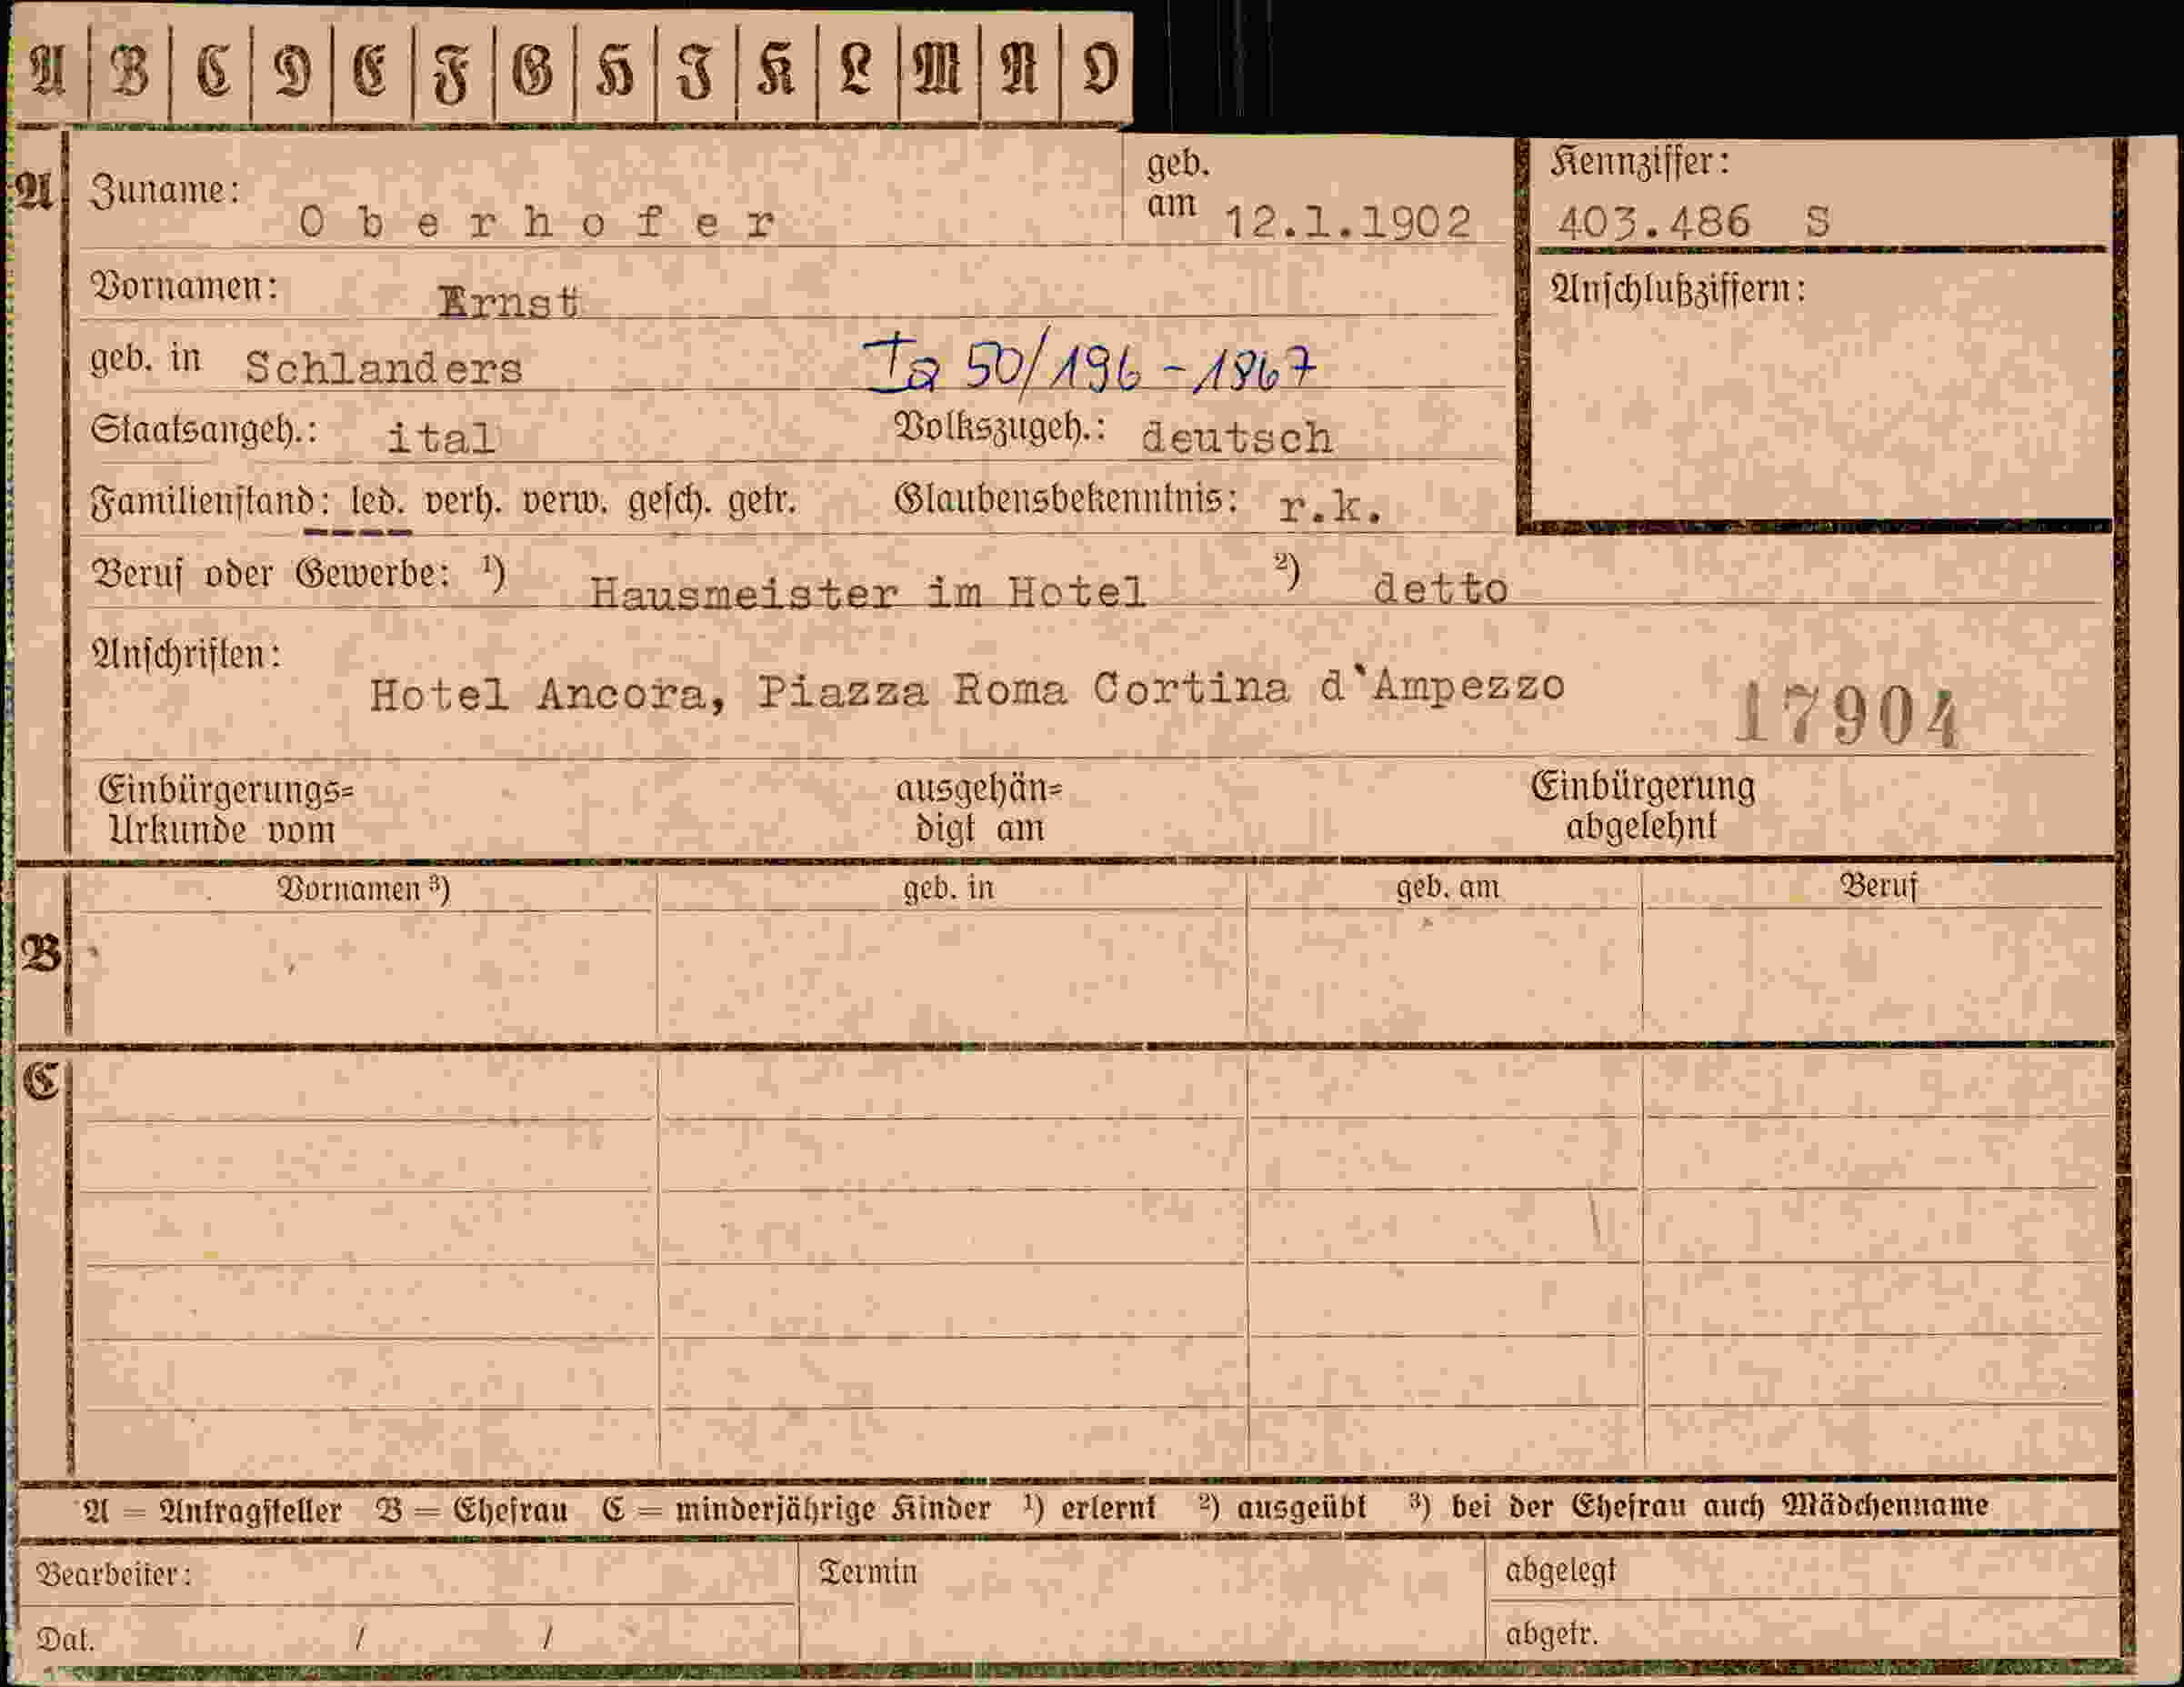 A B C D E F G H J K L M N O
A Zuname: Oberhofer geb. am 12.1.1902 Kennziffer: 403.486 S
Vornamen: Ernst Anschlußziffern:
geb. in Schlanders Ia 50/196-1867
Staatsangeh.: ital Volkszugeh.: deutsch
Familienstand: led. verh. verw. gesch. getr. Glaubensbekenntnis: r.k.
Beruf oder Gewerbe: ¹) Hausmeister im Hotel ²) detto
Anschriften: Hotel Ancora, Piazza Roma Cortina d'Ampezzo 17904
Einbürgerungs= ausgehän= Einbürgerung
Urkunde vom digt am abgelehnt
Vornamen ³) geb. in geb. am Beruf
B
C
A = Antragsteller B = Ehefrau C = minderjährige Kinder ¹) erlernt ²) ausgeübt ³) bei der Ehefrau auch Mädchenname
Bearbeiter: Termin abgelegt
Dat. / / abgetr.